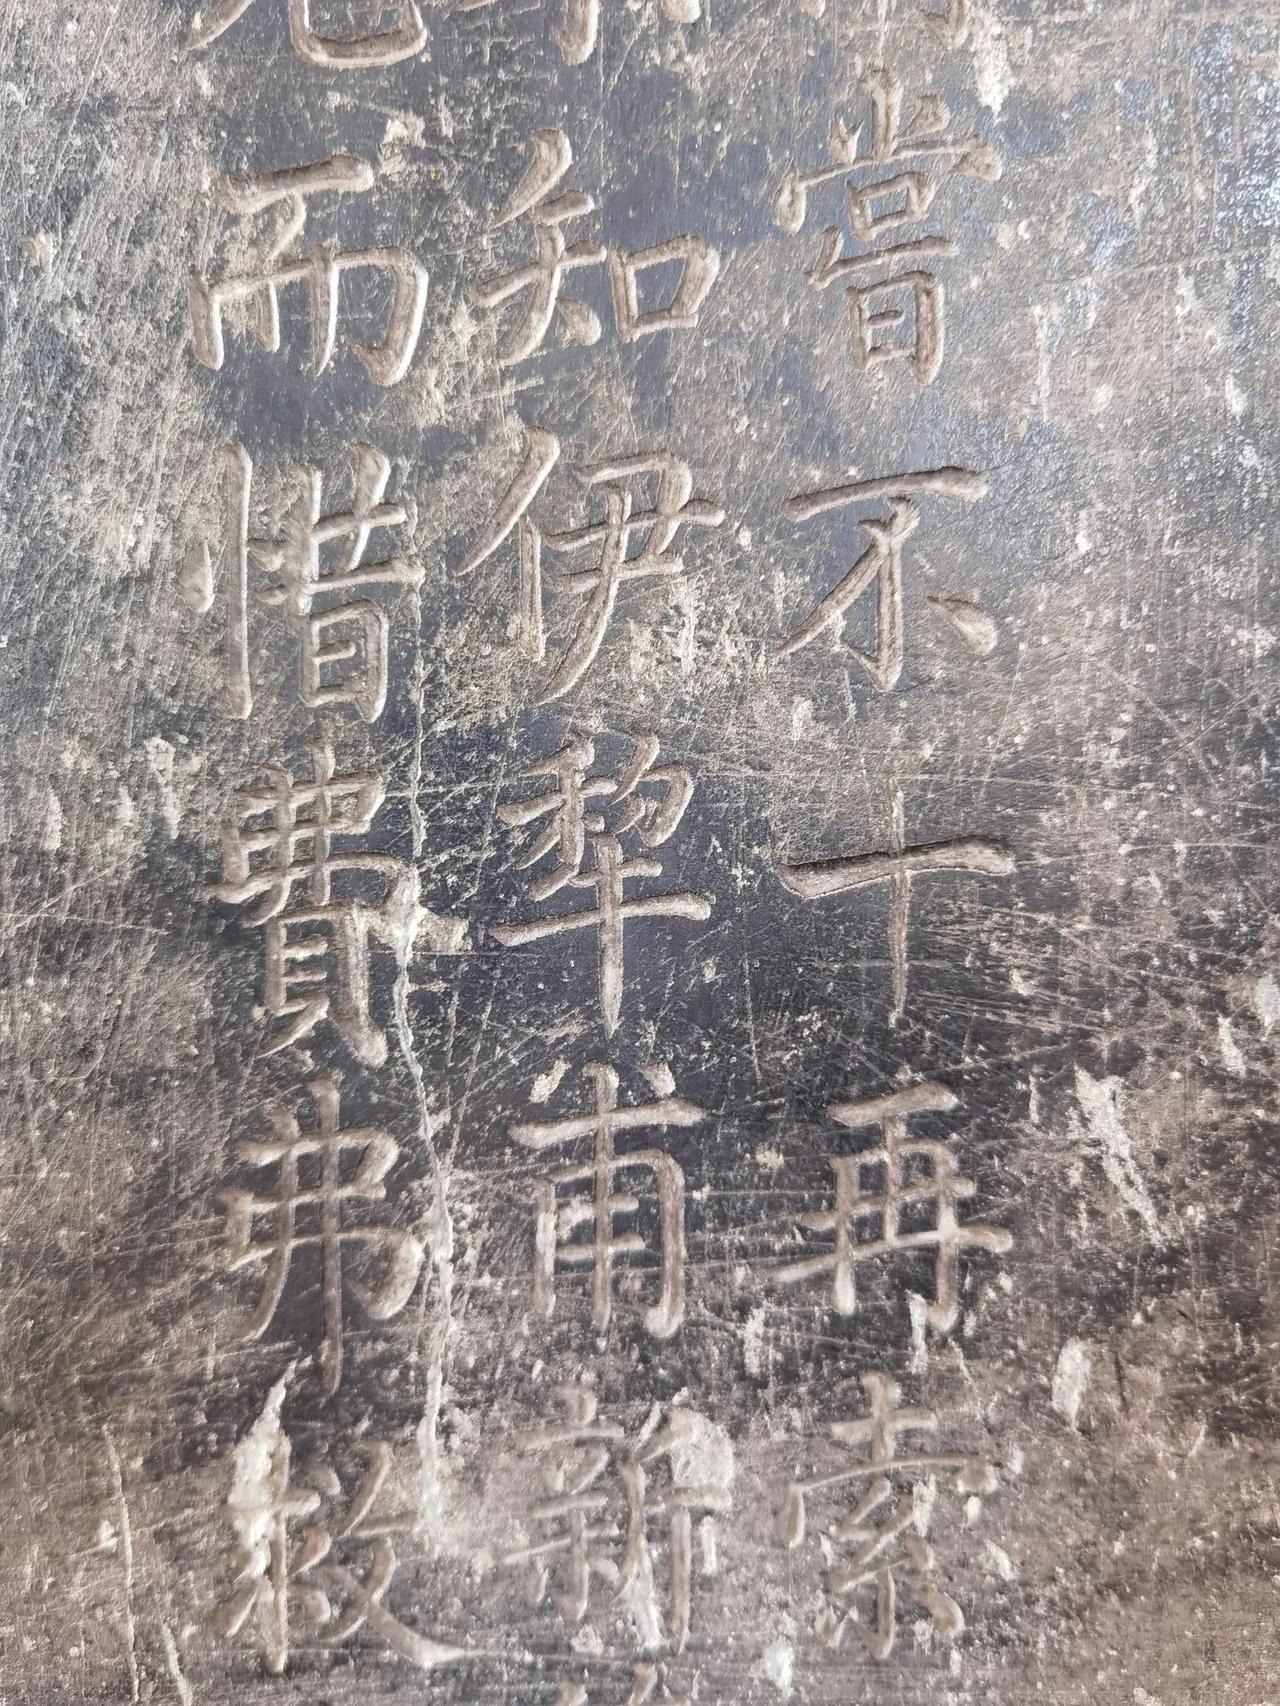 嘗不十再索
知伊犁甫新
而惜費弗救